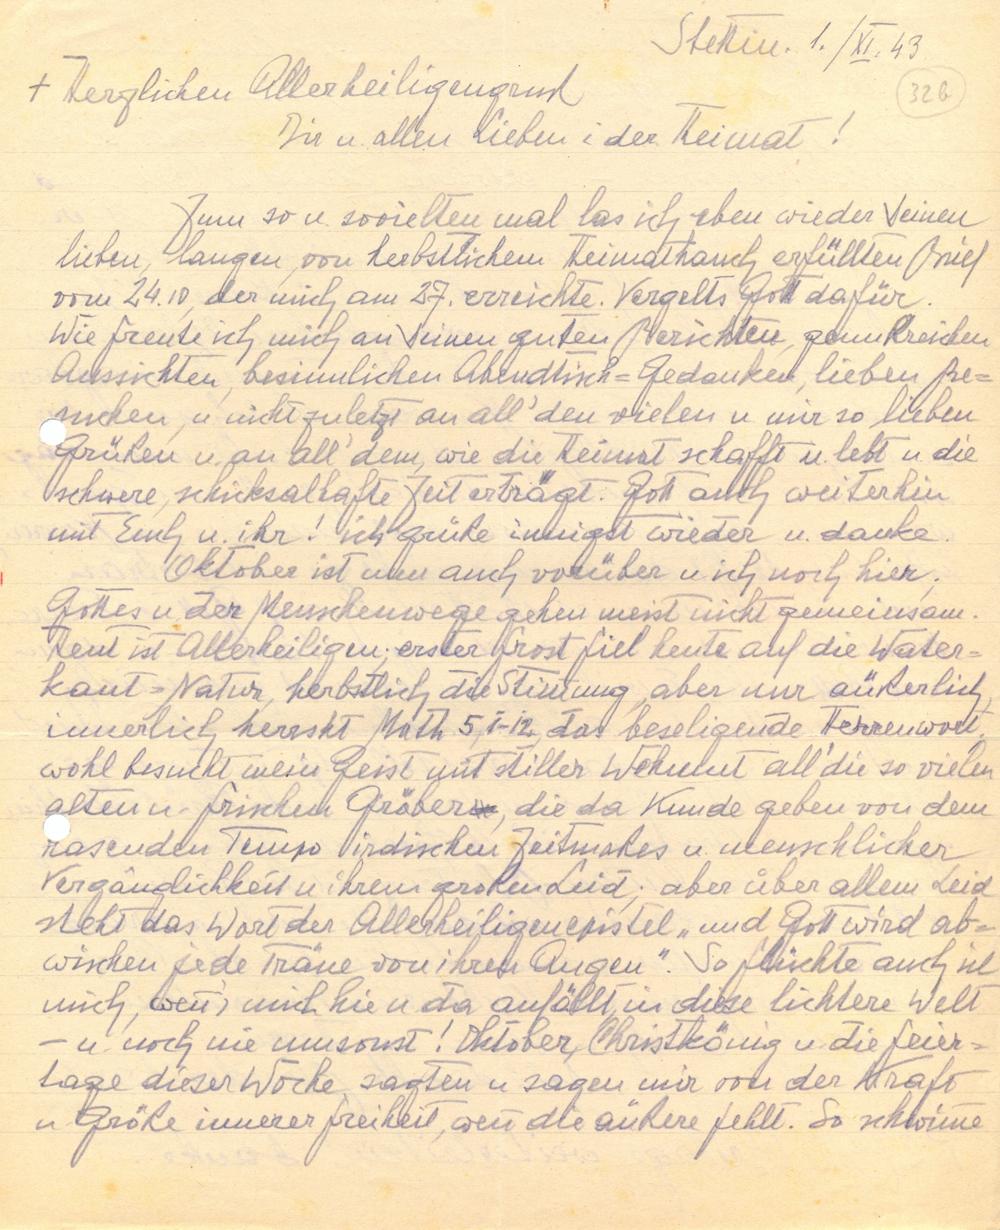 Stettin. 1./XI. 43
32b
+ Herzlichen Allerheiligengruß
Dir u. allen Lieben i. der Heimat!
Zum so u. sovielten mal las ich eben wieder Deinen
lieben, langen, von herbstlichem Heimathauch erfüllten Brief
vom 24.10, der mich am 27. erreichte. Vergelts Gott dafür.
Wie freute ich mich an Deinen guten Berichten, genußreichen
Aussichten, besinnlichen Abendtisch=Gedanken, lieben Be=
suchen, u. nicht zuletzt an all' den vielen u mir so lieben
Grüßen u. an all' dem, wie die Heimat schafft u. lebt u die
schwere, schicksalhafte Zeit erträgt. Gott auch weiterhin
mit Euch u. ihr! ich grüße innigst wieder u. danke.
Oktober ist nun auch vorüber u ich noch hier,
Gottes u der Menschenwege gehen meist nicht gemeinsam.
Heut ist Allerheiligen; erster Frost fiel heute auf die Water=
kant=Natur, herbstlich die Stimung, aber nur äußerlich,
innerlich herrscht Math 5,1-12, das beseligende Herrenwort.
wohl besucht mein Geist mit stiller Wehmut all' die so vielen
alten u. frischen Gräber, die da Kunde geben von dem
rasenden Tempo irdischen Zeitmaßes u. menschlicher
Vergänglichkeit u ihrem großen Leid; aber über allem Leid
steht das Wort der Allerheiligenepistel „und Gott wird ab=
wischen jede Träne von ihren Augen". So flüchte auch ich
mich, wen's mich hie u da anfällt, in diese lichtere Welt
– u. noch nie umsonst! Oktober, Christkönig u die Feier=
tage dieser Woche sagten u sagen mir von der Kraft
u Größe innerer Freiheit, wen die äußere fehlt. So schwime